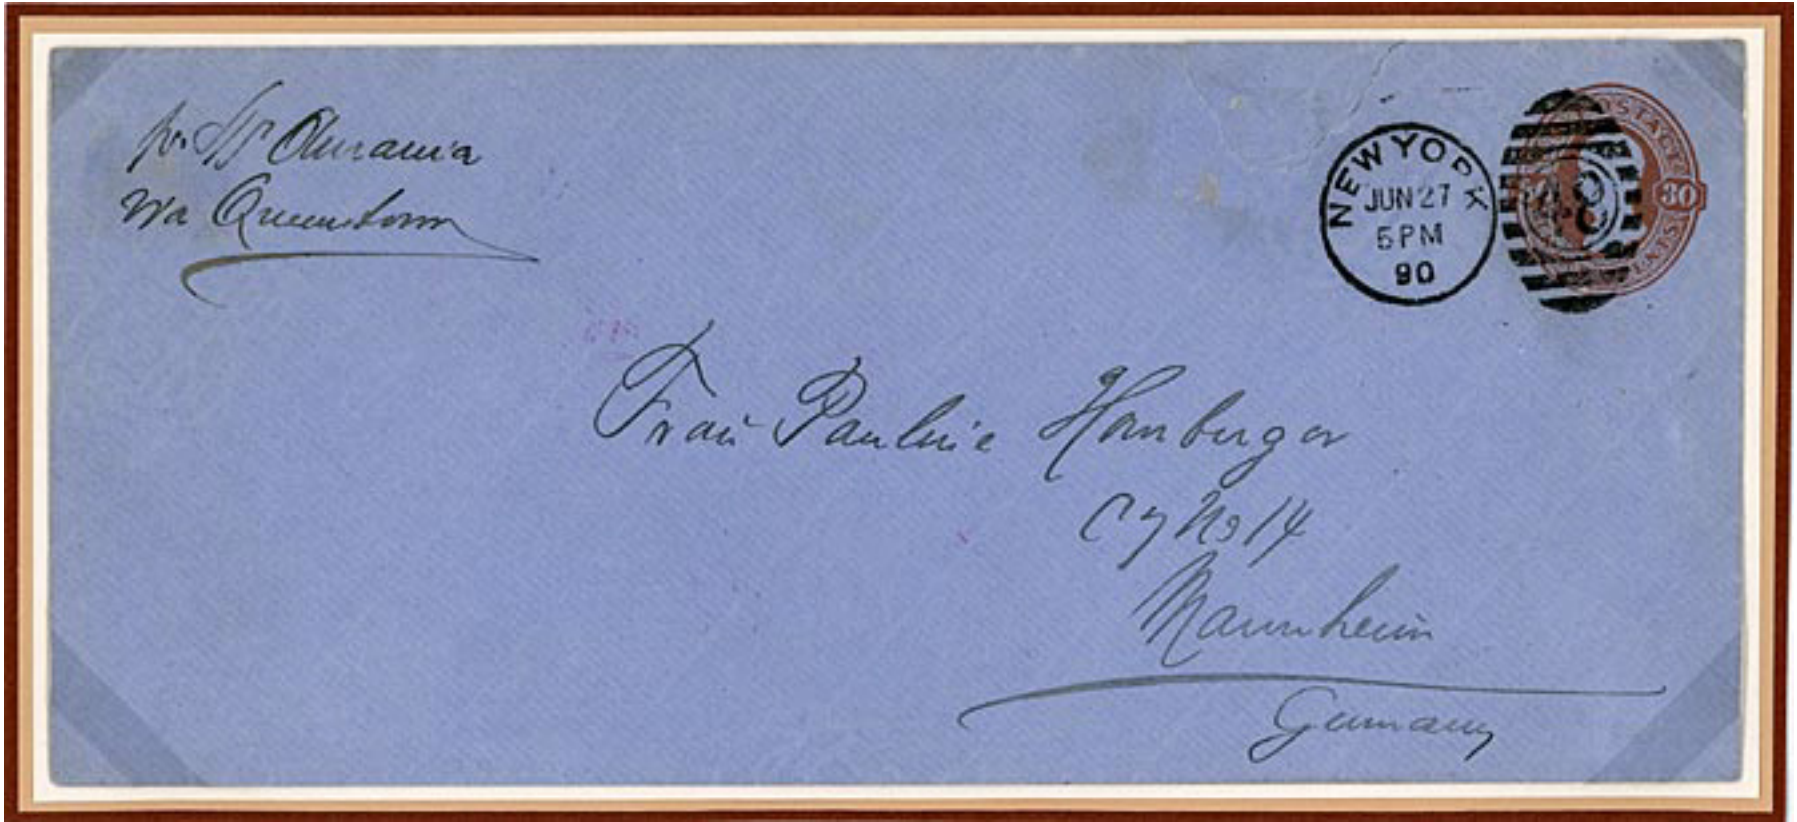 per SS Aurania
via Queenstown
NEW YORK
JUN 27
5 PM
90
POSTAGE
30
CENTS
Frau Pauline Homburger
C 7 No 14
Mannheim
Germany